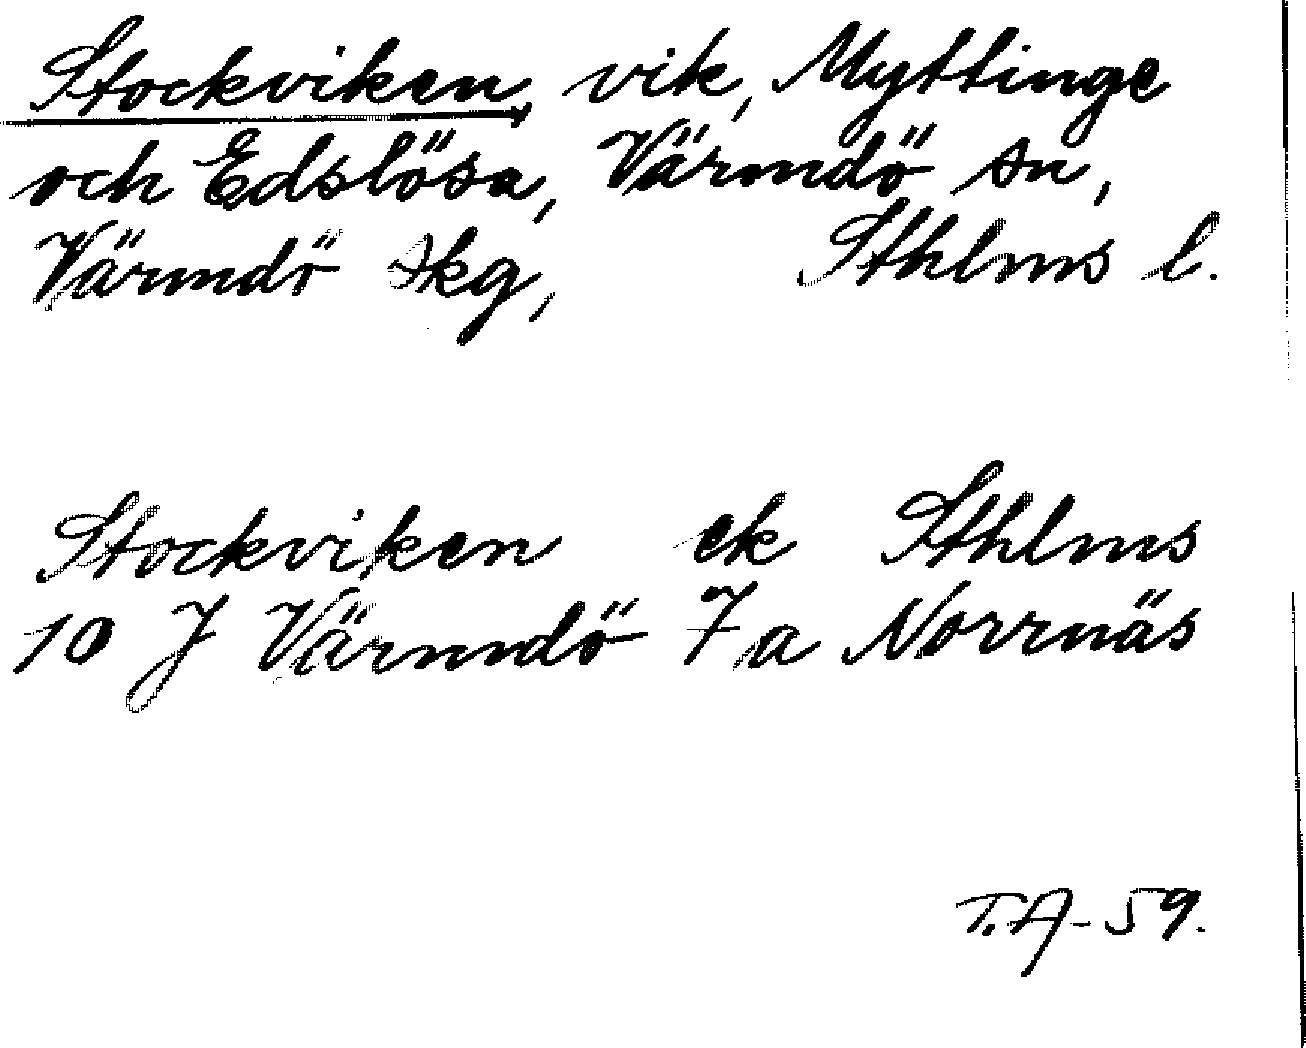 Stockviken, vik, Myttinge
och Edslösa, Värmdö sn,
Värmdö skg, Sthlms l.
Stockviken ek Sthlms
10 J Värmdö 7 a Norrnäs
T.A-59.